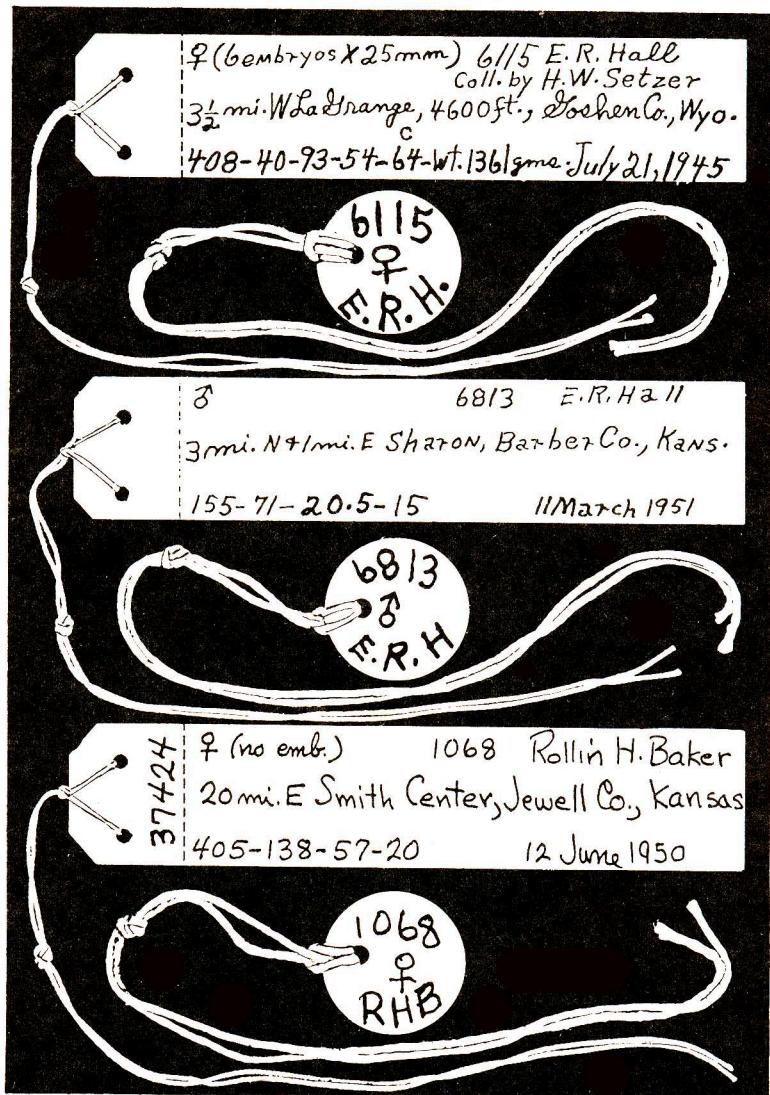 ♀ (6 embryos X 25mm) 6115 E. R. Hall
Coll. by H. W. Setzer
3½ mi. W La Grange, 4600 ft., Goshen Co., Wyo.
c
408-40-93-54-64-Wt. 1361 gms. July 21, 1945
6115
♀
E. R. H.
♂ 6813 E. R. Hall
3 mi. N + 1 mi. E Sharon, Barber Co., Kans.
155-71-20.5-15 11 March 1951
6813
♂
E. R. H
37424
♀ (no emb.) 1068 Rollin H. Baker
20 mi. E Smith Center, Jewell Co., Kansas
405-138-57-20 12 June 1950
1068
♀
RHB